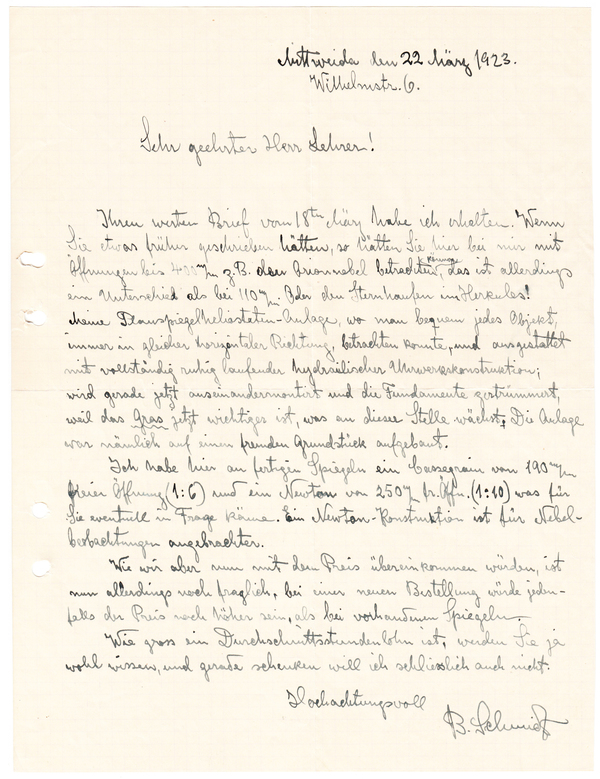 Mittweida den 22 März 1923.
Wilhelmstr. 6.
Sehr geehrter Herr Lehrer!
Ihren werten Brief vom 18ten März habe ich erhalten. Wenn
Sie etwas früher geschrieben hätten, so hätten Sie hier bei mir mit
Öffnungen bis 400 m/m z.B. den Orionnebel betrachten können, das ist allerdings
ein Unterschied als bei 110 m/m. Oder den Sternhaufen im Herkules!
Meine Planspiegelheliostaten-Anlage, wo man bequem jedes Objekt,
immer in gleicher horizontaler Richtung, betrachten konnte, und ausgestattet
mit vollständig ruhig laufender hydraulischer Uhrwerkskonstruktion;
wird gerade jetzt auseinandermontiert und die Fundamente zertrümmert,
weil das Gras jetzt wichtiges ist, was an dieser Stelle wächst. Die Anlage
war nämlich auf einen fremden Grundstück aufgebaut.
Ich habe hier an fertigen Spiegeln ein Cassegrain von 190 m/m
freier Öffnung (1:6) und ein Newton von 250 m/m fr. Öffn. (1:10) was für
Sie eventuell in Frage käme. Ein Newton-Konstruktion ist für Nebel-
beobachtungen angebrachter.
Wie wir aber nun mit dem Preis übereinkommen würden, ist
nun allerdings noch fraglich, bei einer neuen Bestellung würde jeden-
falls der Preis noch höher sein, als bei vorhandenen Spiegeln.
Wie gross ein Durchschnittsstundenlohn ist, werden Sie ja
wohl wissen, und gerade schenken will ich schliesslich auch nicht.
Hochachtungsvoll
B. Schmidt